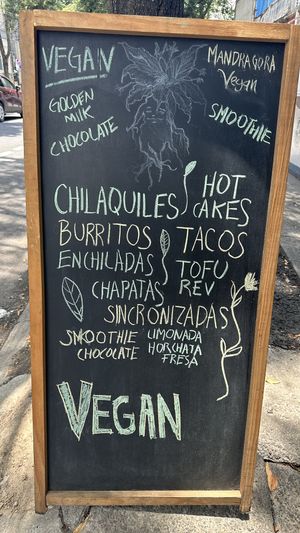 VEGAN
MANDRAGORA
Vegan
GOLDEN
MILK
CHOCOLATE
SMOOTHIE
CHILAQUILES
HOT
CAKES
BURRITOS TACOS
ENCHILADAS TOFU
CHAPATAS REV
SINCRONIZADAS
SMOOTHIE
CHOCOLATE
LIMONADA
HORCHATA
FRESA
VEGAN